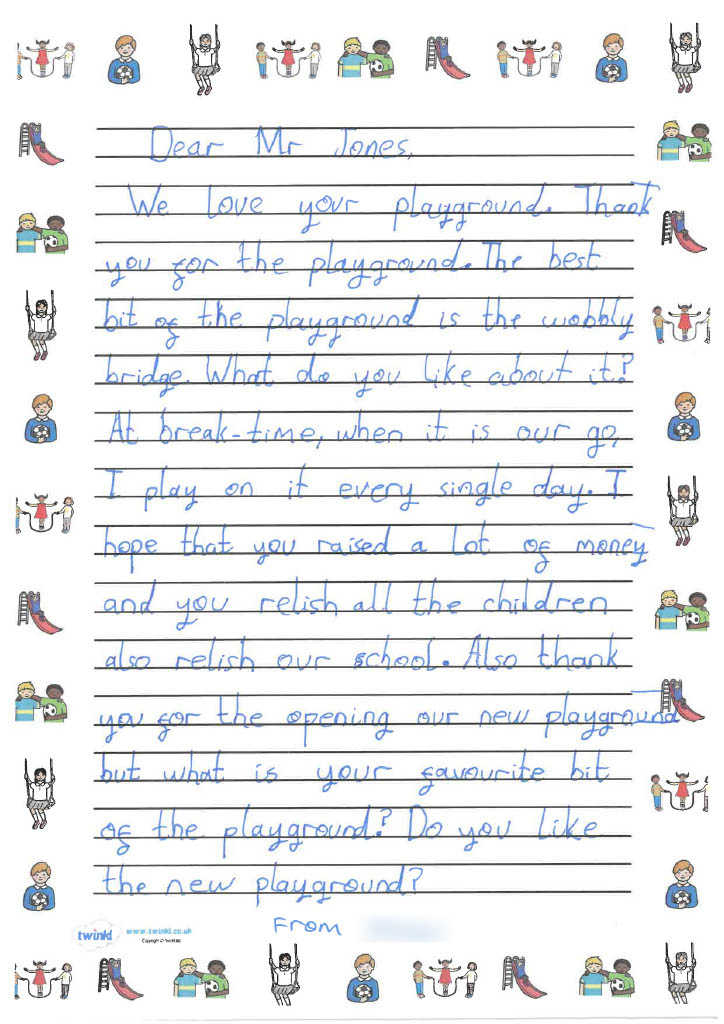 Dear Mr Jones,
We love your playground. Thank
you for the playground. The best
bit of the playground is the wobbly
bridge. What do you like about it?
At break-time, when it is our go,
I play on it every single day. I
hope that you raised a lot of money
and you relish all the children
also relish our school. Also thank
you for the opening our new playground
but what is your favourite bit
of the playground? Do you like
the new playground?
From
twinkl www.twinkl.co.uk